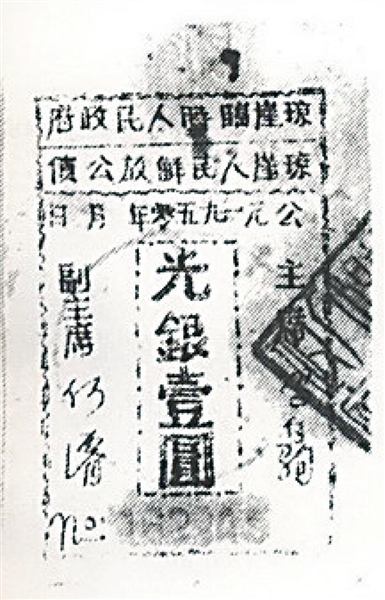 琼崖臨時人民政府
琼崖人民解放公債
公元一九五零年 月 日
主席
光銀壹圓
副主席 何濬
No: